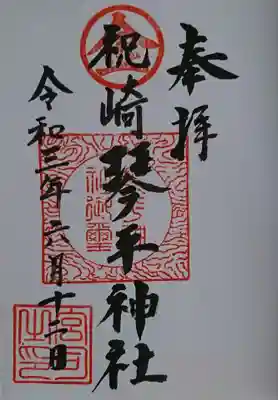 奉拝
祝崎琴平神社
令和三年六月十二日
金